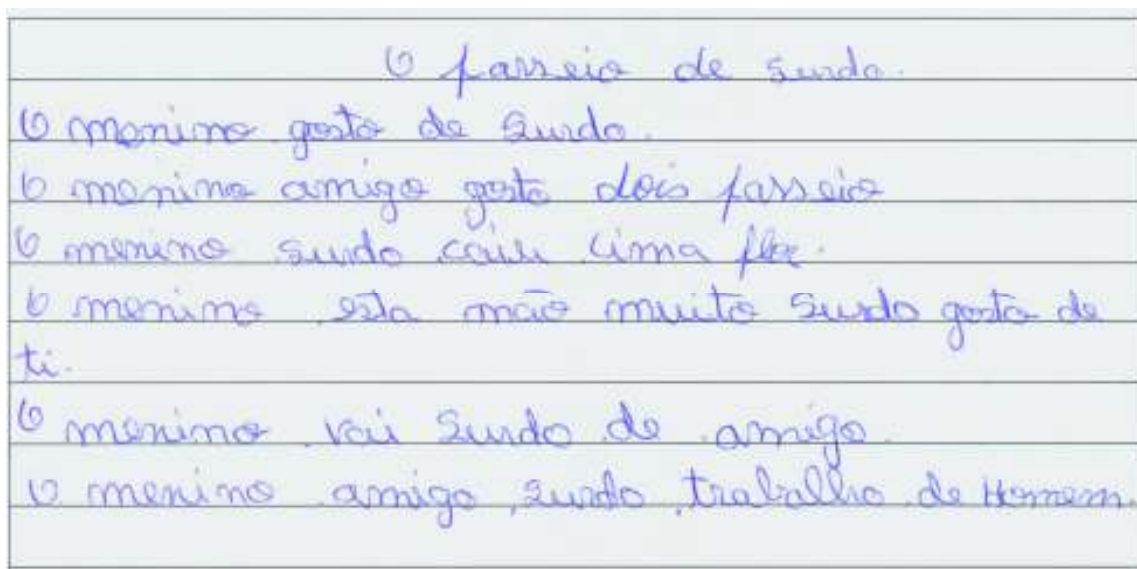 O passeio de surdo.
O menino gosto de surdo.
O menino amigo gosto dois passeio
O menino surdo caiu uma flor.
O menino esta não muito surdo gosto de
ti.
O menino vai surdo de amigo.
O menino amigo surdo trabalho de Homem.